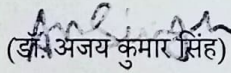 (डॉ. अजय कुमार सिंह)